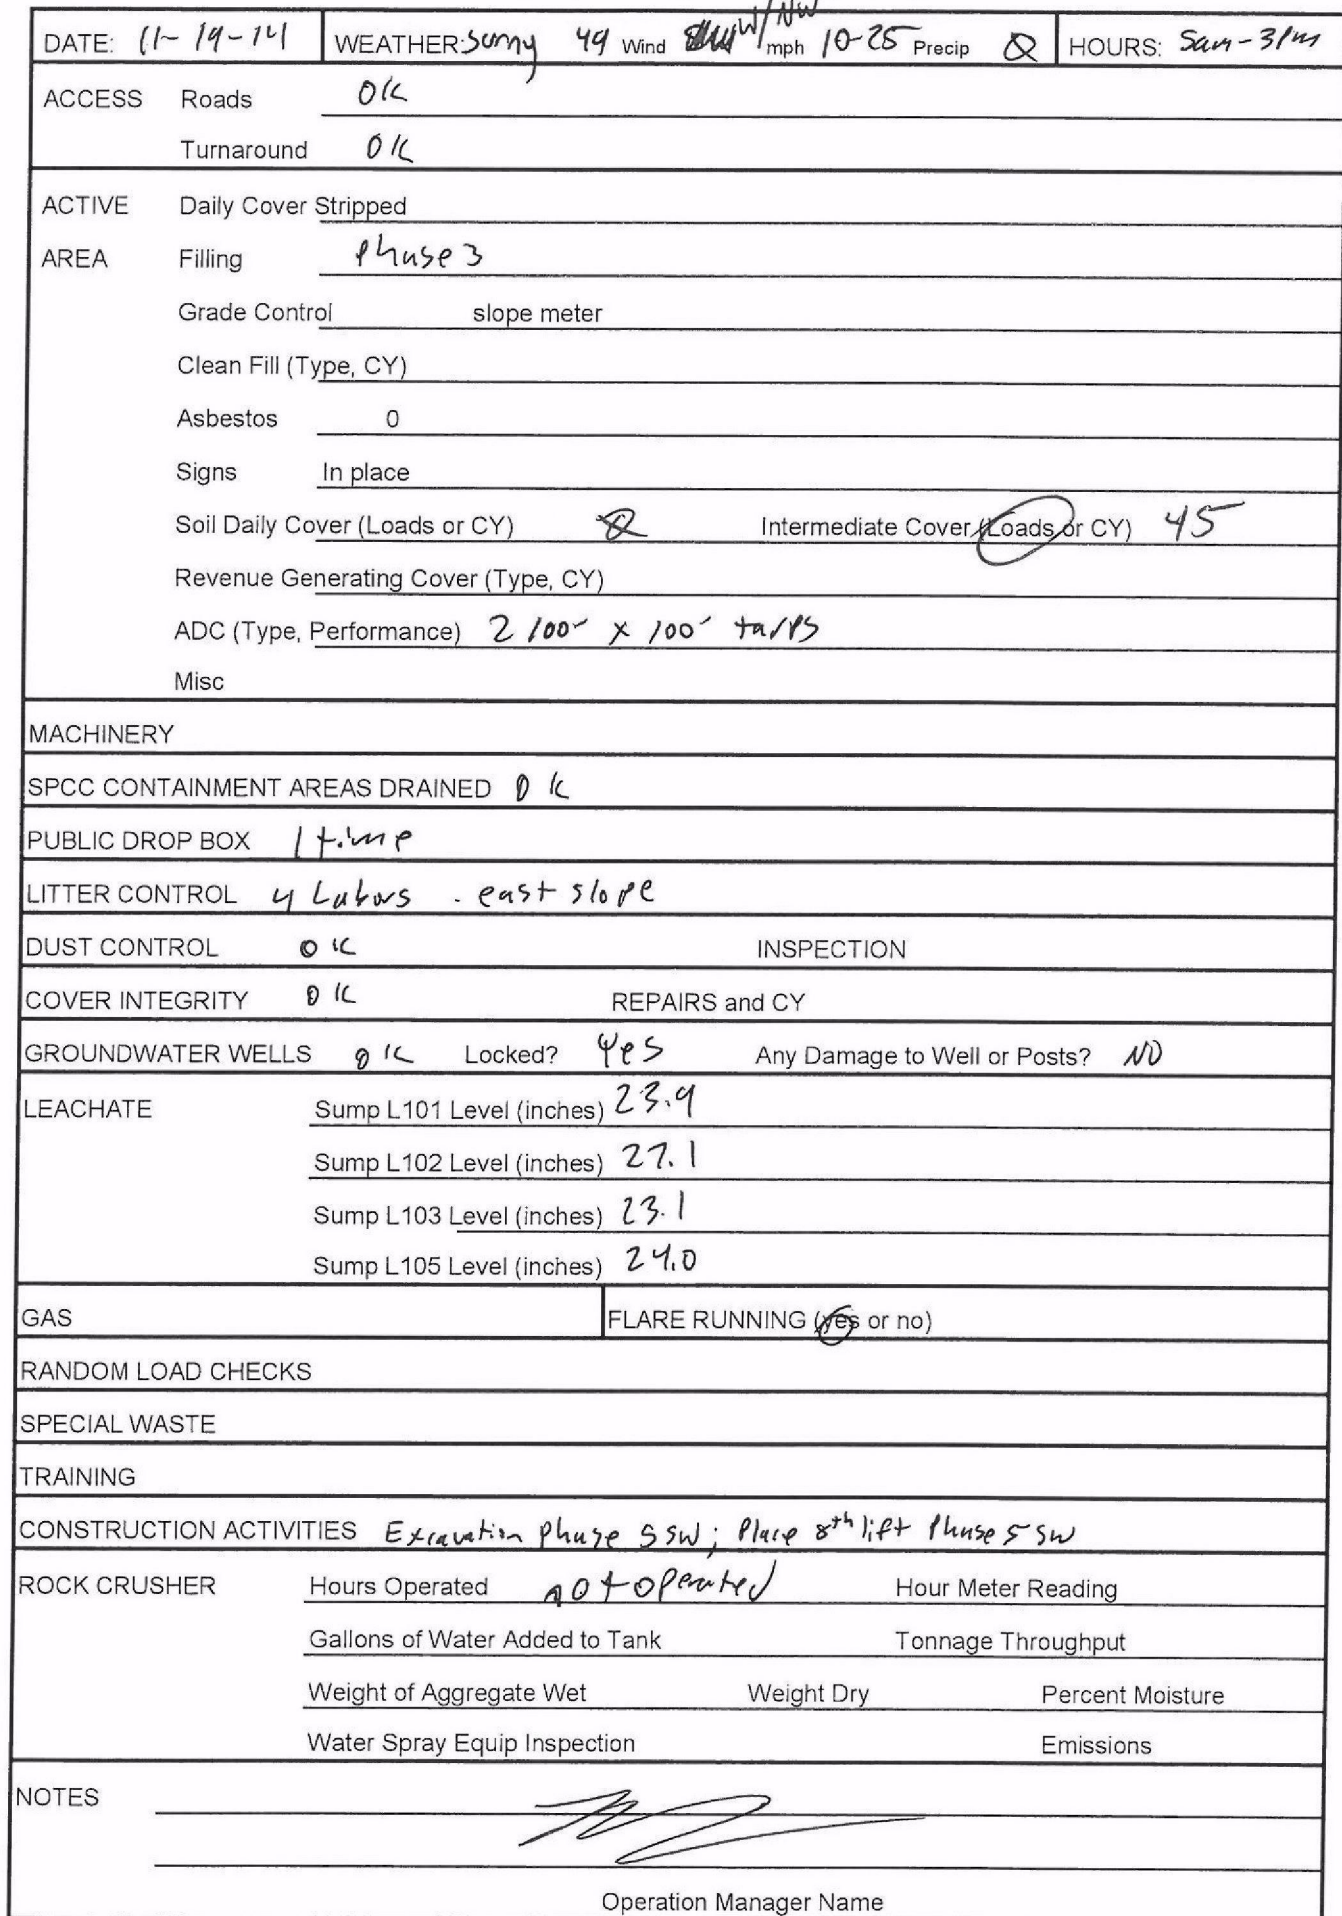 DATE: 11-19-14 WEATHER: Sunny 49 Wind W/NW mph 10-25 Precip 0 HOURS: 5am-3pm
ACCESS Roads OK
Turnaround OK
ACTIVE Daily Cover Stripped
AREA Filling Phase 3
Grade Control slope meter
Clean Fill (Type, CY)
Asbestos 0
Signs In place
Soil Daily Cover (Loads or CY) 0 Intermediate Cover (Loads or CY) 45
Revenue Generating Cover (Type, CY)
ADC (Type, Performance) 2 100' x 100' tarps
Misc
MACHINERY
SPCC CONTAINMENT AREAS DRAINED OK
PUBLIC DROP BOX 1 time
LITTER CONTROL 4 Labors . east slope
DUST CONTROL OK INSPECTION
COVER INTEGRITY OK REPAIRS and CY
GROUNDWATER WELLS OK Locked? Yes Any Damage to Well or Posts? NO
LEACHATE Sump L101 Level (inches) 23.9
Sump L102 Level (inches) 27.1
Sump L103 Level (inches) 23.1
Sump L105 Level (inches) 24.0
GAS FLARE RUNNING (yes or no)
RANDOM LOAD CHECKS
SPECIAL WASTE
TRAINING
CONSTRUCTION ACTIVITIES Excavation Phase 5 SW; Place 8th lift Phase 5 SW
ROCK CRUSHER Hours Operated not operated Hour Meter Reading
Gallons of Water Added to Tank Tonnage Throughput
Weight of Aggregate Wet Weight Dry Percent Moisture
Water Spray Equip Inspection Emissions
NOTES
Operation Manager Name